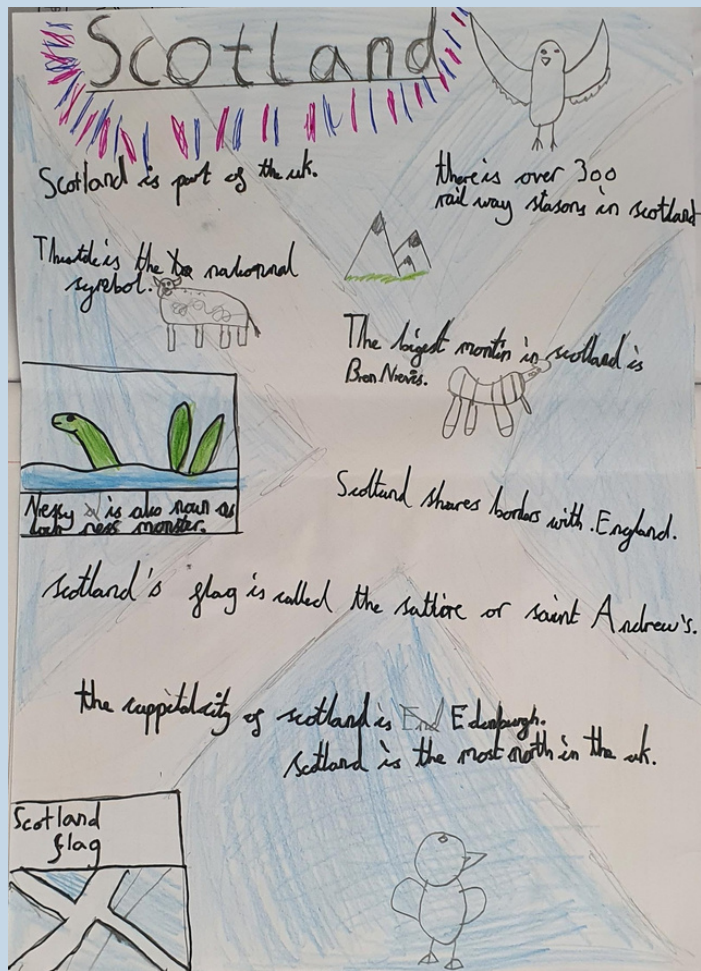 Scotland
Scotland is part of the uk.
there is over 300
railway stasons in scotland
Thistle is the nationnal
symbol.
The bigest montin in scotland is
Ben Nieves.
Nessy is also noun as
loch ness monster.
Scotland shares borders with England.
scotland's flag is called the saltire or saint Andrew's.
the cappital city of scotland is Edenburgh.
scotland is the most north in the uk.
Scotland
flag